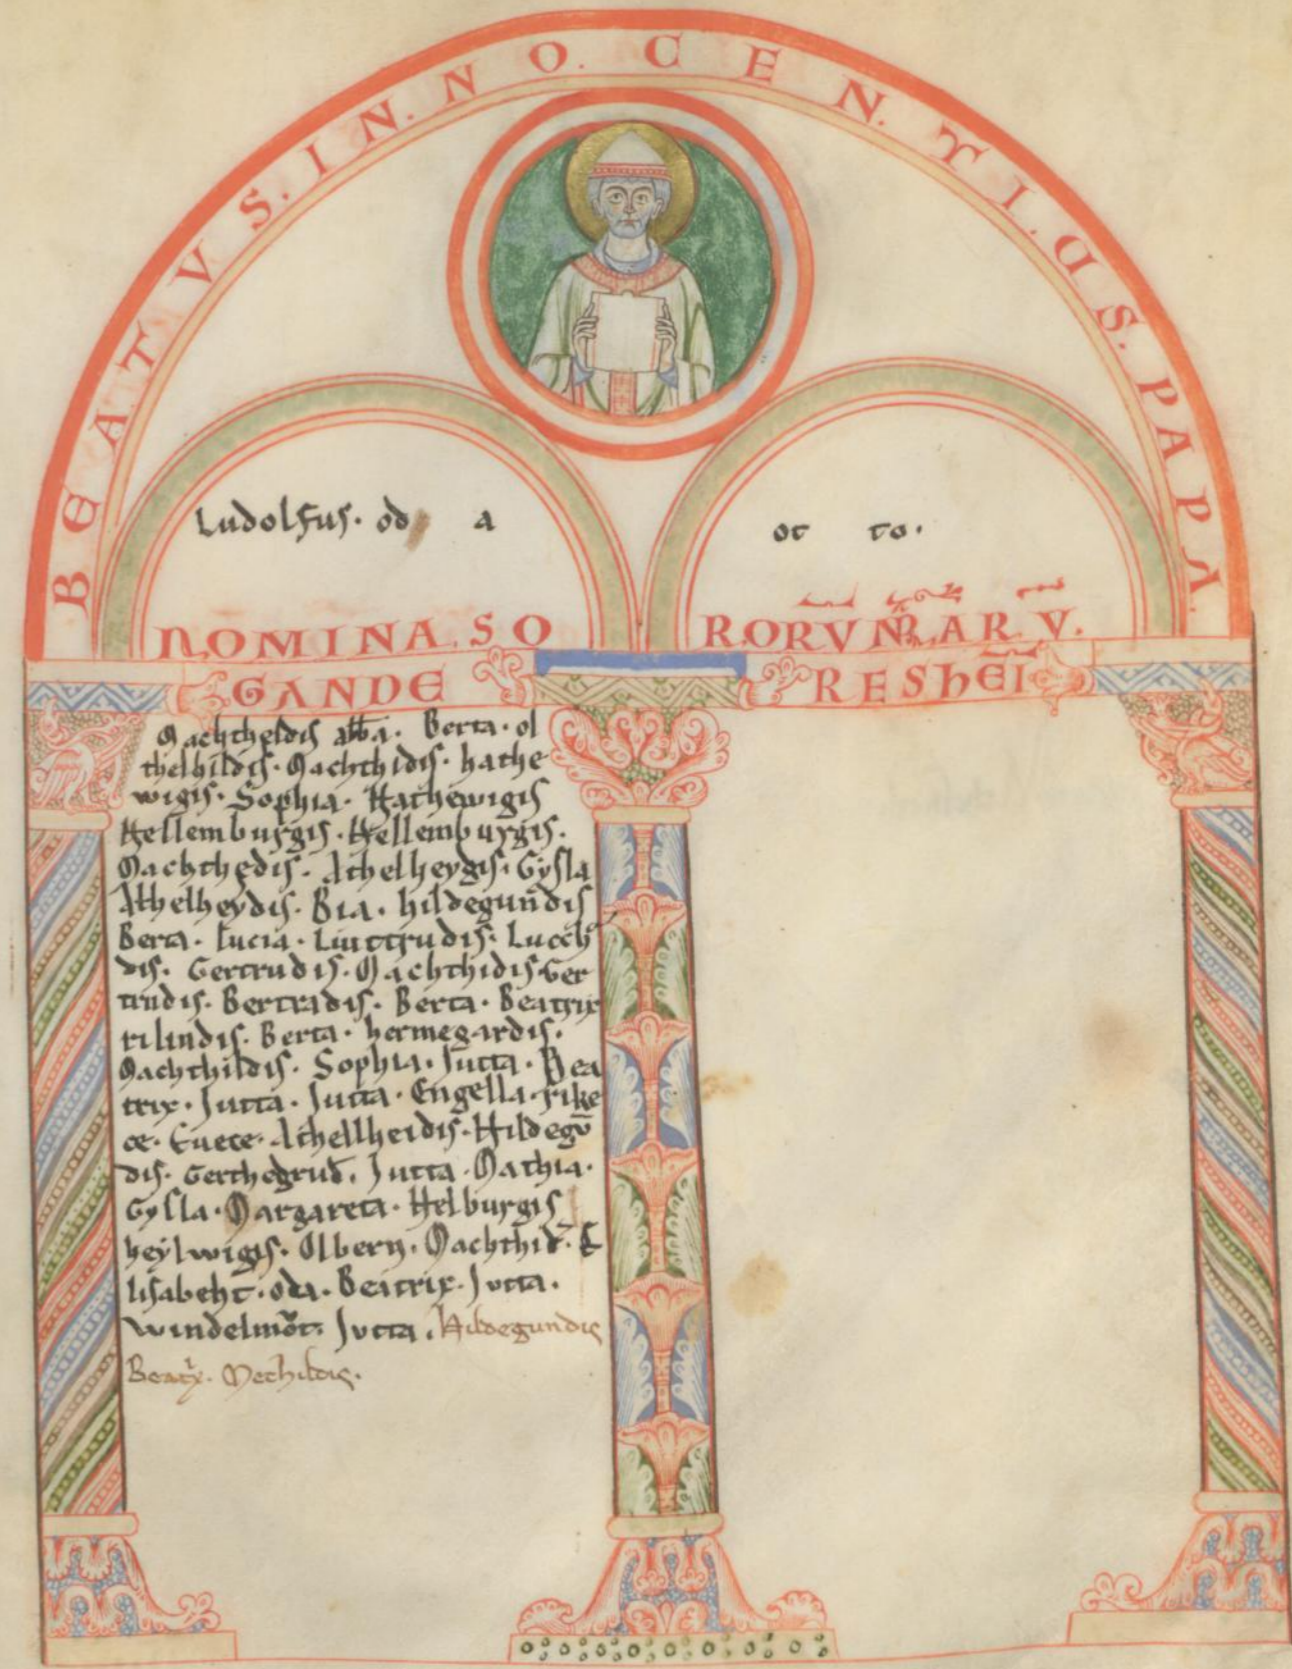 BEATVS. IN. NO. CEN. TI. US. PAPA.
Ludolfus. od a
ot to.
NOMINA. SO RORVM NR̄AR V̄.
GANDE RESHĒI
Machtheldis abb̄a. Berta. ol
thelhildis. Machthidis. hathe
wigis. Sophia. Hathewigis
Hellemburgis. Hellemburgis.
Machthedis. Athelheygis. Gysla
Athelheydis. Bia. hildegun̄dis
Berta. Lucia. Liuttrudis. Lucch
dis. Gertrudis. Machthidis. Ger
trudis. Bertradis. Berta. Beatrix
rilindis. Berta. hermegardis.
Machthildis. Sophia. Jutta. Bea
trix. Jutta. Jutta. Engella. rike
ce. Euece. Athellheidis. Hildegv̄
dis. Gerthegrud̄. Jutta. Mathia.
Gysla. Margareta. Helburgis
heylwigis. Olbern. Machthid̄. E
lisabeht. oda. Beatrix. Jvtta.
Windelmōt. Jvtta. Hildegundis
Beatx. Mechildis.